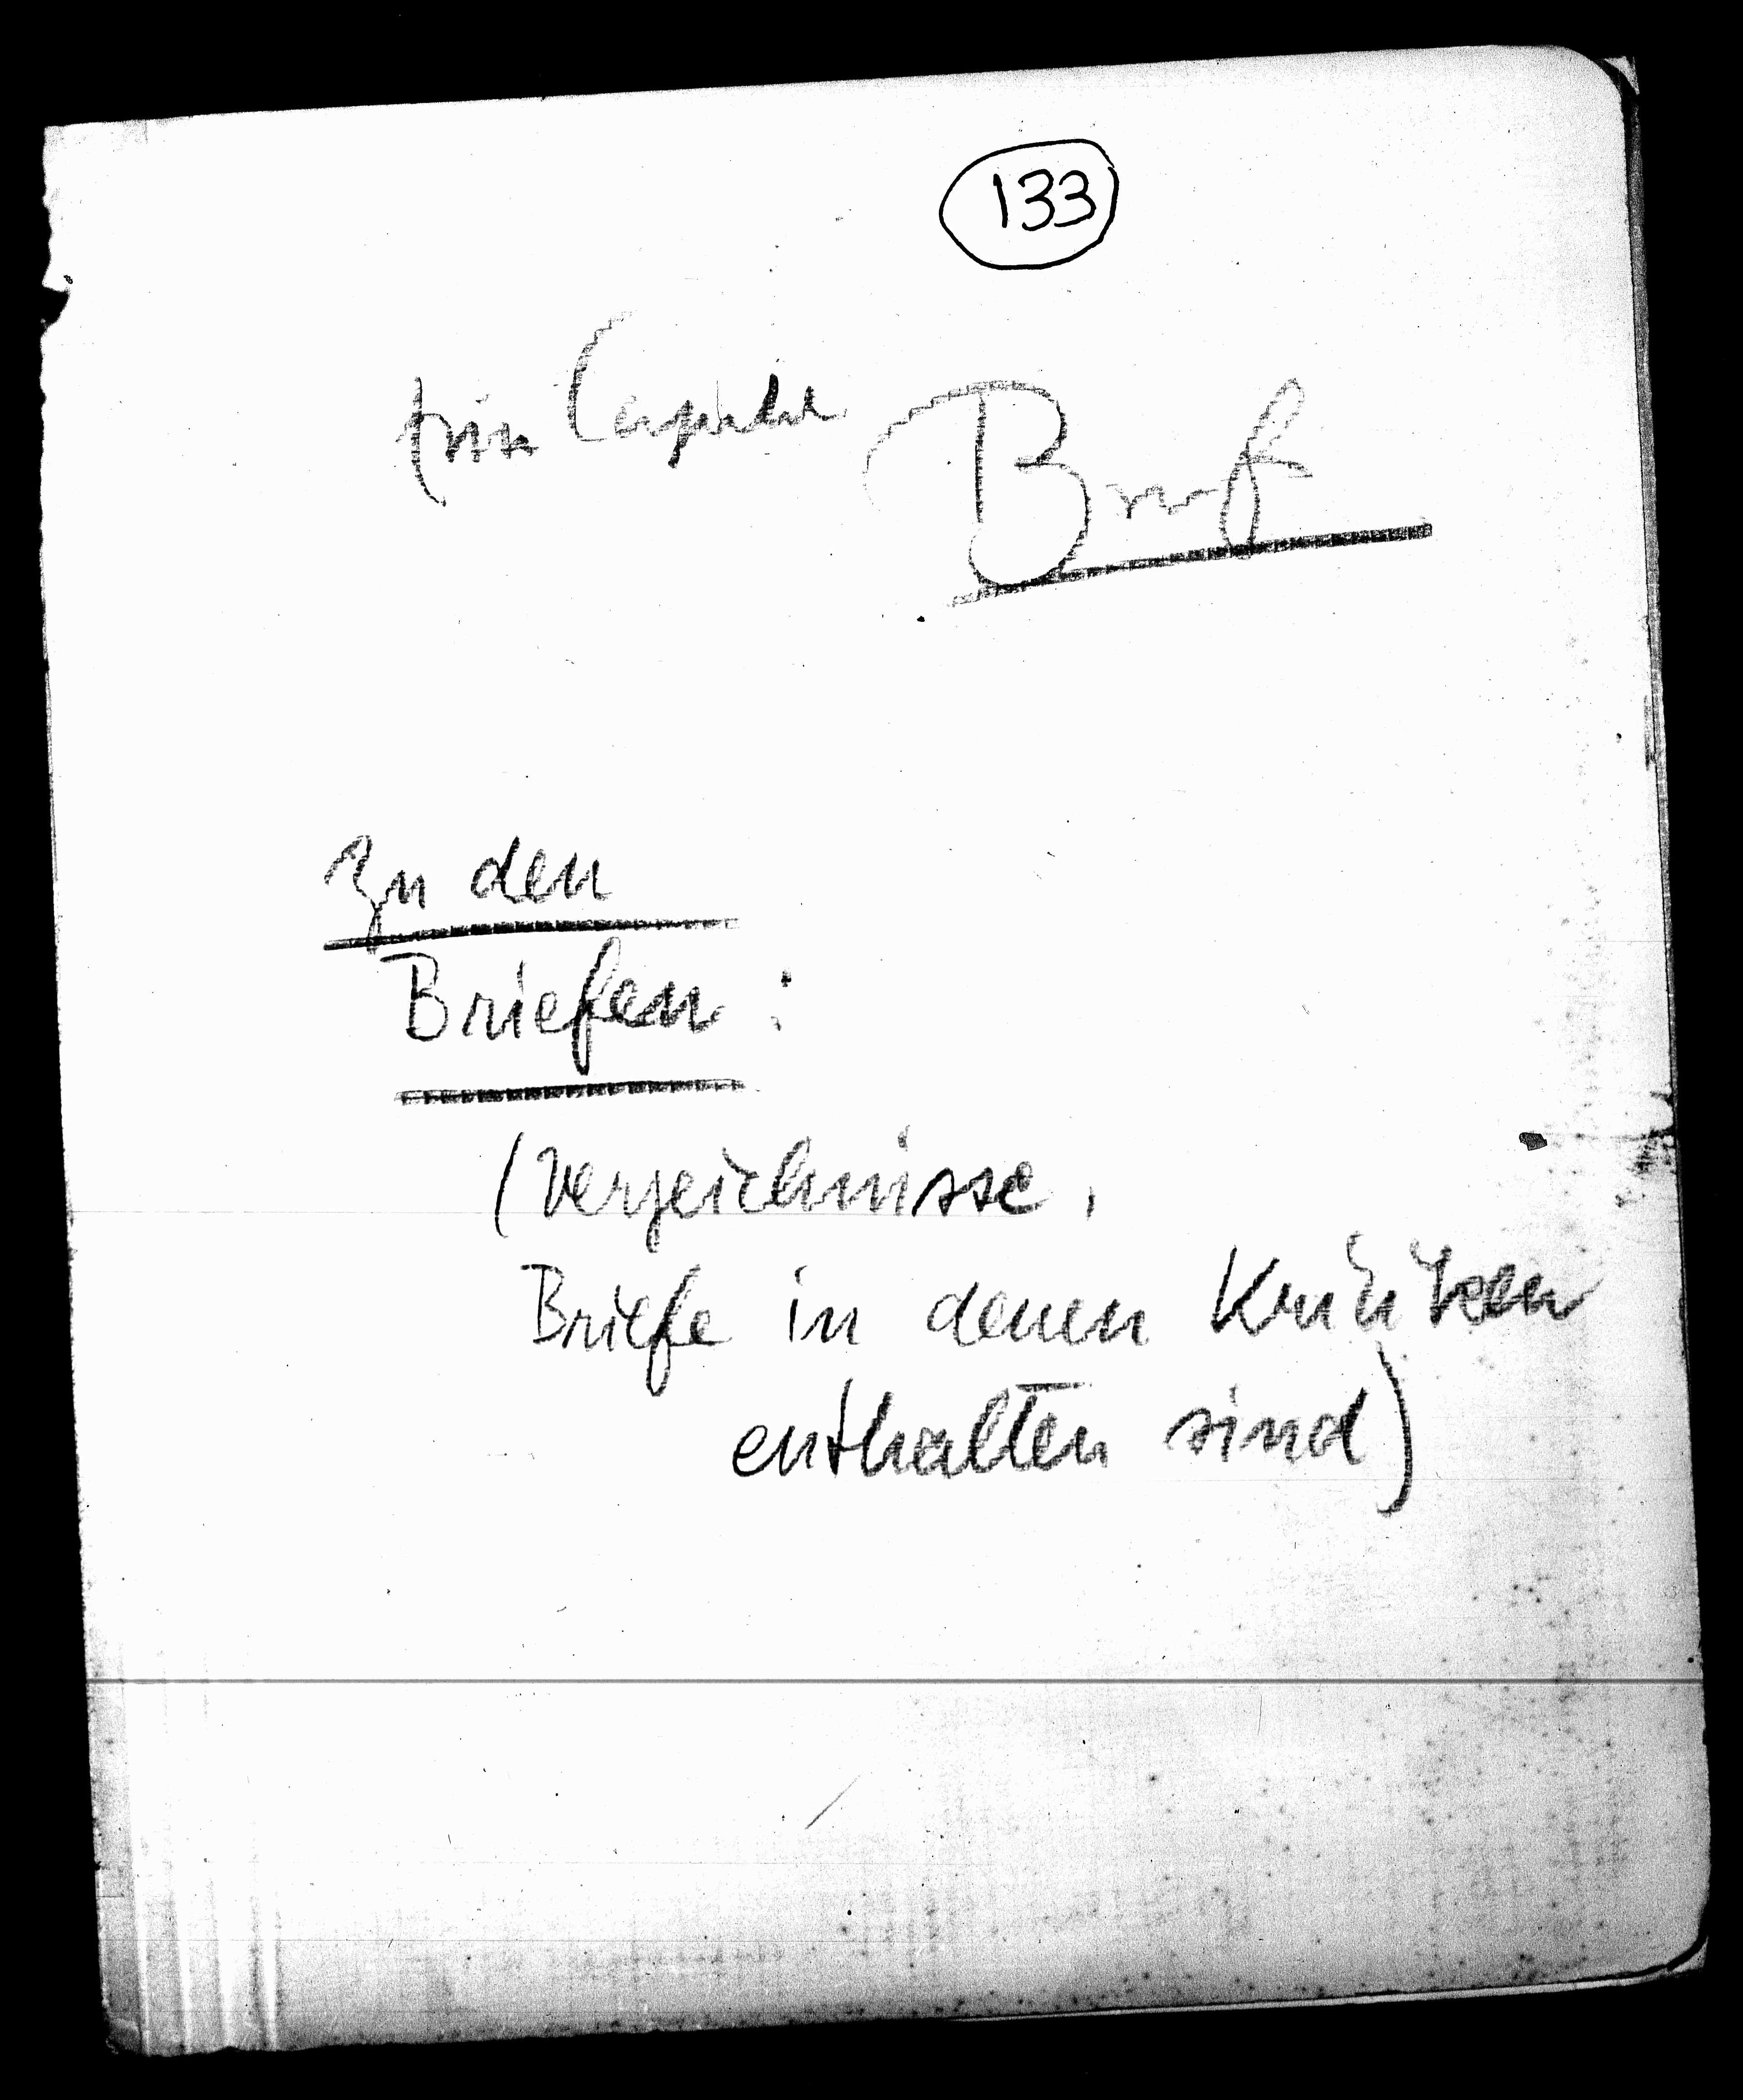 133
Brief
Zu den
Briefen :
(Verzeichnisse,
Briefe in denen Kritiken
enthalten sind)